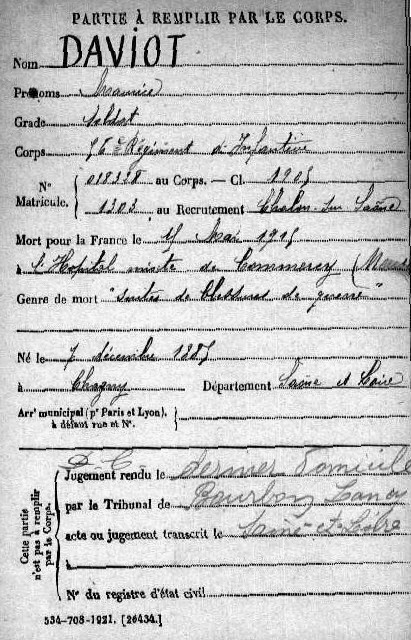 PARTIE À REMPLIR PAR LE CORPS.
Nom DAVIOT
Prénoms Maurice
Grade Soldat
Corps 56e Régiment d'Infanterie
N° Matricule. { 018328 au Corps. — Cl. 1905
1303 au Recrutement Chalon-sur-Saône
Mort pour la France le Mai 1915
à l'Hôpital mixte de Commercy (Meuse
Genre de mort "suites de blessures de guerre"
Né le 7 décembre 1885
à Chagny Département Saône et Loire
Arrt municipal (pr Paris et Lyon), à défaut rue et N°. {
Cette partie n'est pas à remplir par le Corps. {
D C
Jugement rendu le dernier domicile
par le Tribunal de Bourbon Lancy
acte ou jugement transcrit le Saône et Loire
à
N° du registre d'état civil
534-708-1921. [26434.]